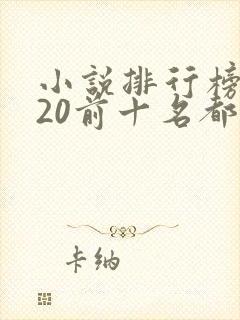 小說排行榜
20前十名都
卡納